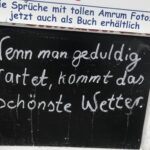 ie Sprüche mit tollen Amrum Foto
jetzt auch als Buch erhältlich
Wenn man geduldig
artet, kommt das
schönste Wetter.